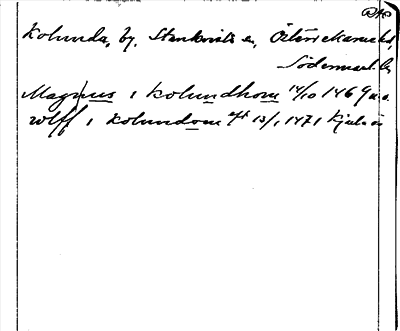 Kolunda, by, Stenkvista sn, Österrekarne hd,
Södermanl. l.
Magnus i kolundhom 14/10 1469
wlff i kolundom aft 13/1 1471 Kjula